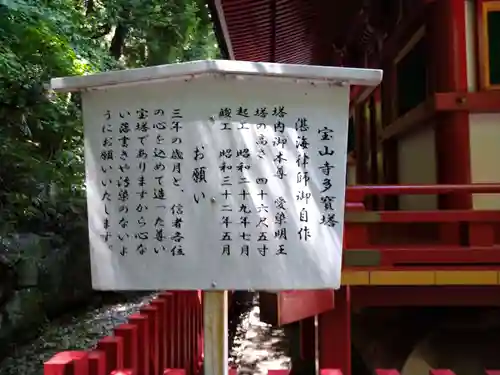 宝山寺多寶塔
湛海律師御自作
塔内御本尊　愛染明王
塔の高さ　四十六尺五寸
起工　昭和二十九年七月
竣工　昭和三十二年五月
お願い
三年の歳月と、信者各位
の心を込めて造った尊い
宝塔でありますから心な
い落書きや汚染のないよ
うにお願いいたします。